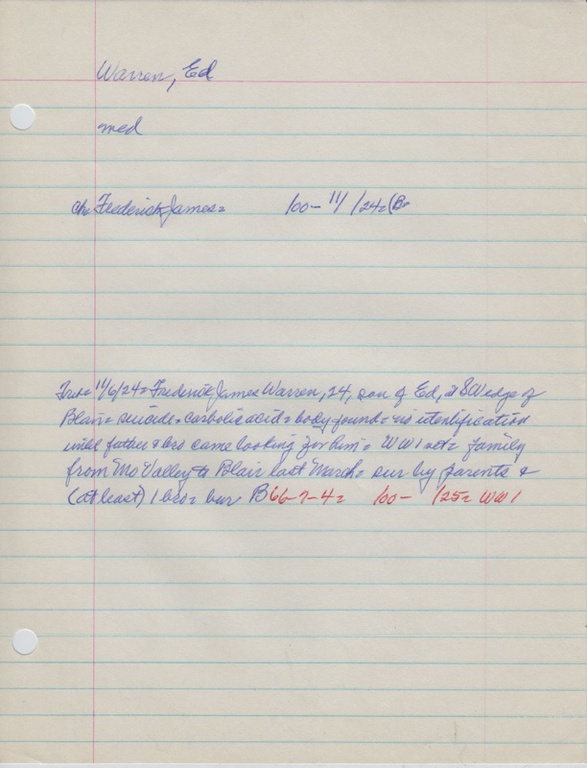 Warren, Ed
med
ch: Frederick James= 100- 11/ /24= (B=
11/6/24= Frederick James Warren, 24, son of Ed, at SW edge of
Blair= suicide= carbolic acid= body found= no identification
until father & bro came looking for him= WW1 vet= family
from Mo Valley to Blair last March= sur by parents &
(at least) 1 bro= bur B66-7-4= 100- /25= WW1